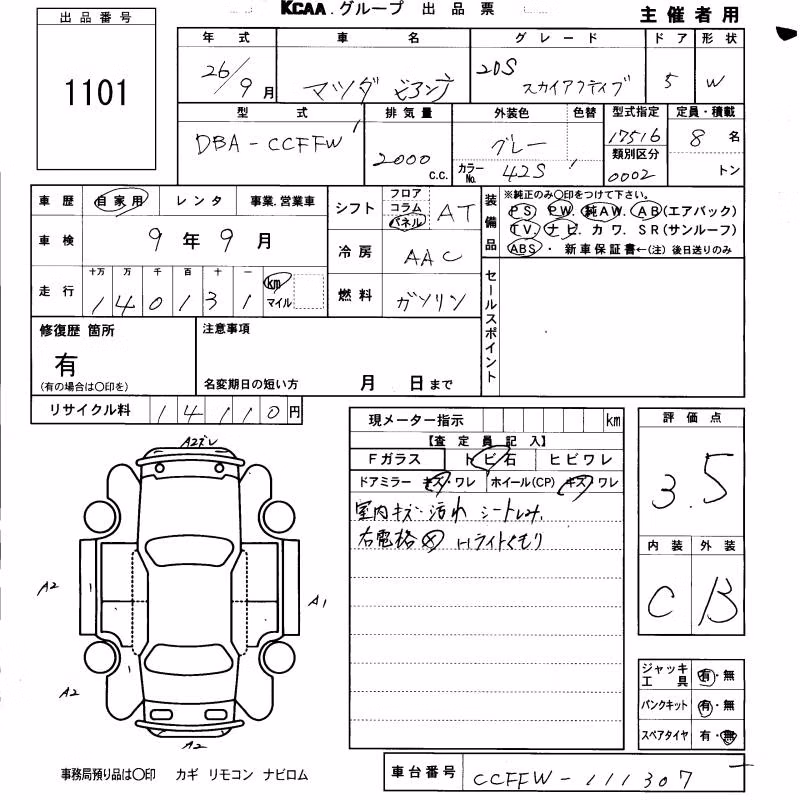 KCAA.グループ 出品票 主催者用
出品番号
1101
年式 車名 グレード ドア 形状
26/9月 マツダ ビアンテ 20S スカイアクティブ 5 W
型式 排気量 外装色 色替 型式指定 定員・積載
DBA-CCFFW 2000 c.c. グレー 17516 8名
カラーNo. 42S 類別区分 0002 トン
車歴 自家用 レンタ 事業.営業車
車検 9年9月
走行 十万 万 千 百 十 一
140131 km マイル
シフト フロア コラム パネル AT
冷房 AAC
燃料 ガソリン
装備品 ※純正のみ〇印をつけて下さい。
PS. PW. 純AW. AB(エアバック)
TV. ナビ. カワ. SR(サンルーフ)
ABS・新車保証書←(注)後日送りのみ
セールスポイント
修復歴 箇所
有
(有の場合は〇印を)
注意事項
名変期日の短い方 月 日まで
リサイクル料 14110円
現メーター指示 km
【査定員記入】
Fガラス トビ石 ヒビワレ
ドアミラー キズ・ワレ ホイール(CP) キズ・ワレ
室内キズ・汚れ シートしみ.
右電格 Hライトくもり
評価点
3.5
内装 外装
C B
ジャッキ工具 有・無
パンクキット 有・無
スペアタイヤ 有・無
A2ズレ
A2
A1
A2
A2
事務局預り品は〇印 カギ リモコン ナビロム
車台番号 CCFFW-111307